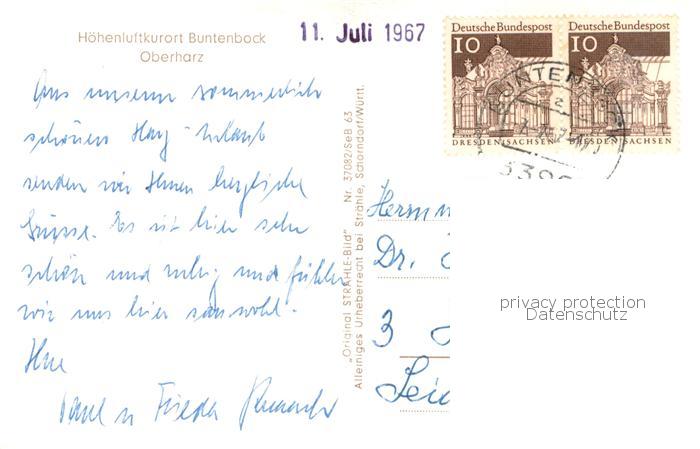 Höhenluftkurort Buntenbock
Oberharz
11. Juli 1967
Deutsche Bundespost Deutsche Bundespost
10 10
DRESDEN/SACHSEN DRESDEN/SACHSEN
BUNTEN
Aus unserem sommerlich
schönen Harz-Urlaub
senden wir Ihnen herzliche
Grüsse. Es ist hier sehr
schön und ruhig und fühlen
wir uns hier sauwohl.
Ihre
u Frieda
"Original STRÄHLE-Bild" Nr. 37082/SeB 63
Alleiniges Urheberrecht bei Strähle, Schorndorf/Württ.
Herrn
Dr.
3
privacy protection
Datenschutz